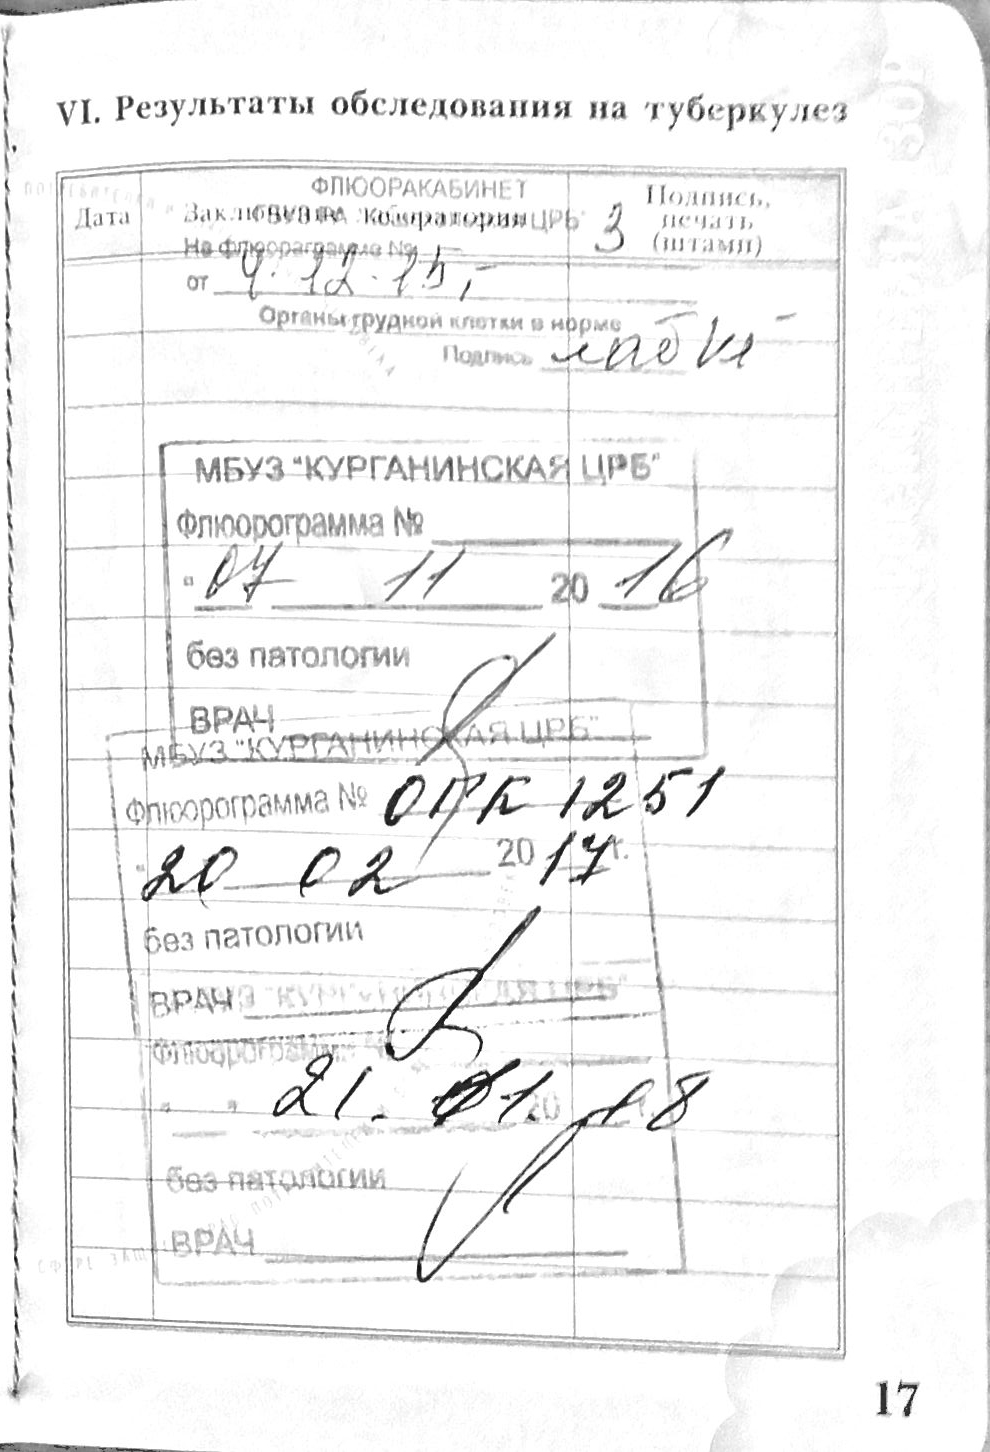 VI. Результаты обследования на туберкулез
Дата
Заключение лаборатории
Подпись, печать (штамп)
ФЛЮОРАКАБИНЕТ
ЦРБ"
3
На флюораграмме №
от 4.12.15г
Органы грудной клетки в норме
Подпись
МБУЗ "КУРГАНИНСКАЯ ЦРБ"
Флюорограмма №
" 07 11 20 16
без патологии
ВРАЧ
МБУЗ "КУРГАНИНСКАЯ ЦРБ"
Флюорограмма № ОГК 1251
" 20 02 20 17 г.
без патологии
ВРАЧ
"КУРГАНИНСКАЯ ЦРБ"
Флюорограмма №
" " 21. 01. 20 18
без патологии
ВРАЧ
17